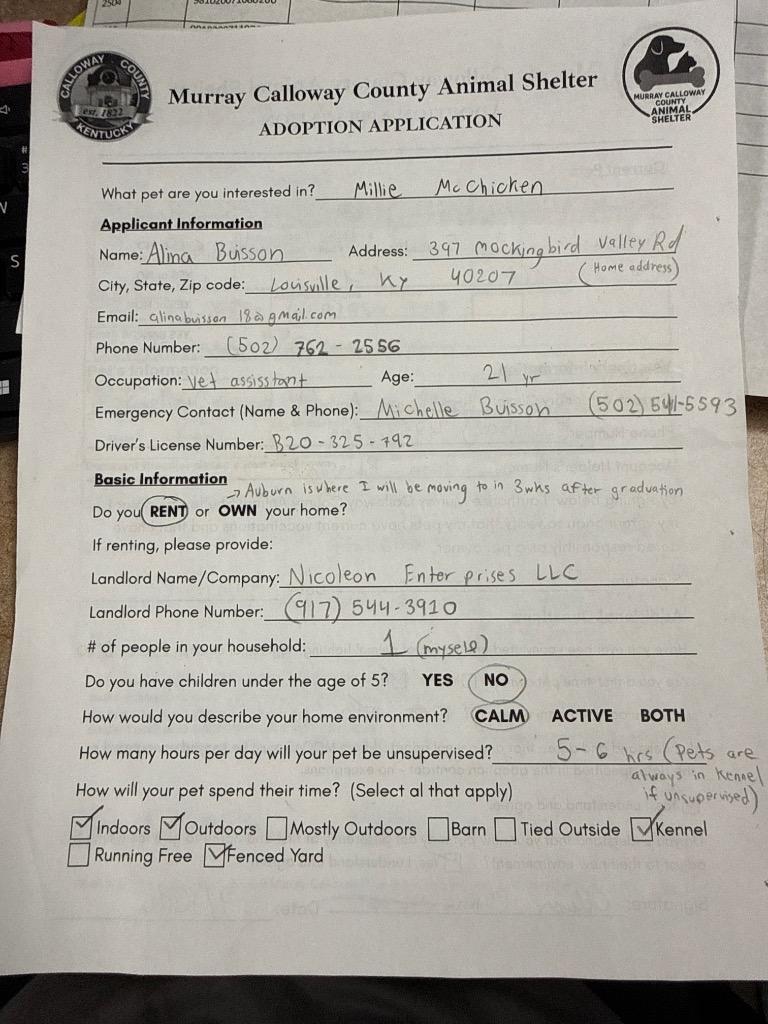 2504
981020071080200
CALLOWAY COUNTY
est. 1822
KENTUCKY
Murray Calloway County Animal Shelter
ADOPTION APPLICATION
MURRAY CALLOWAY
COUNTY
ANIMAL
SHELTER
What pet are you interested in? Millie McChicken
Applicant Information
Name: Alina Buisson Address: 397 mockingbird valley Rd
City, State, Zip code: Louisville, Ky 40207 (Home address)
Email: alinabuisson18@gmail.com
Phone Number: (502) 762-2556
Occupation: Vet assisstant Age: 21 yr
Emergency Contact (Name & Phone): Michelle Buisson (502) 541-5593
Driver's License Number: B20-325-792
Basic Information
→ Auburn is where I will be moving to in 3wks after graduation
Do you RENT or OWN your home?
If renting, please provide:
Landlord Name/Company: Nicoleon Enterprises LLC
Landlord Phone Number: (917) 544-3910
# of people in your household: 1 (myself)
Do you have children under the age of 5? YES NO
How would you describe your home environment? CALM ACTIVE BOTH
How many hours per day will your pet be unsupervised? 5-6 hrs (Pets are
always in Kennel
if unsupervised)
How will your pet spend their time? (Select al that apply)
Indoors Outdoors Mostly Outdoors Barn Tied Outside Kennel
Running Free Fenced Yard